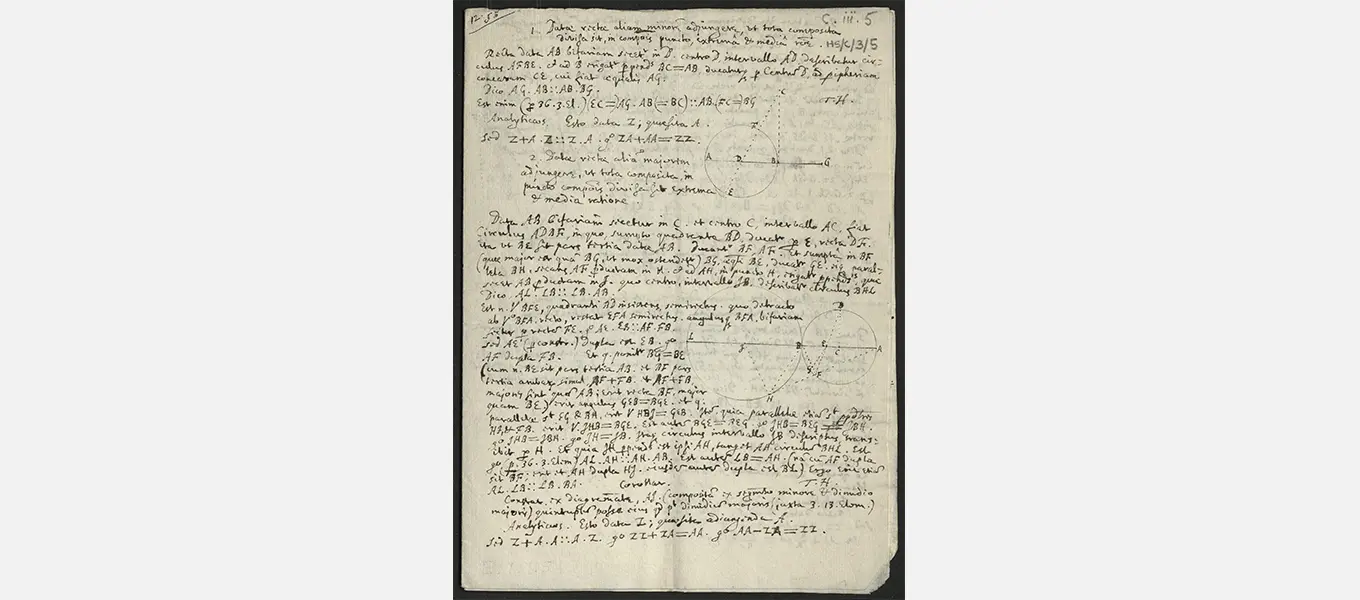 12.55
C. iii. 5
HS/C/3/5
1. Datae rectae aliam minorem adjungere, ut tota composita
divisa sit, in compois puncto, extrema & media
Recta data AB bifariam secetur in D. centro D, intervallo AD describatur cir=
culus AFBE. & ad B erigatur BC=AB, ducatur, p Centru D, ad
CE, cui fiat aequalis AG.
Dico AG. AB::AB.BG.
Est enim (p 36.3.El.) EC=)AG. AB(=BC)::AB.(FC=)BG
T.H.
Analyticos. Esto data Z; quaesita A.
Sed Z+A. Z::Z. A. go ZA+AA=ZZ.
2. Datae rectae aliam majorem
adjungere, ut tota composita, in
puncto compois divisa sit extrema
& media ratione
Data AB bifariam secetur in C. et centro C, intervallo AC, fiat
Circulus ADBF, in quo, sumpto quadrante BD, ducatur p E, recta DF.
ita ut BE sit pars tertia data AB. ducantr BF, AF. Et sumpta in BF
(quae major est qua BG, ut mox ostendetr) BG, BE, ducatr GE.
BH, secans AF productam in H. & ad AH, in puncto H,
secet AB productam in J. quo centro, intervallo JB, describatr circulus BHL
Dico AL. LB::LB. AB.
Est n. V BFE, quadranti AD insistens, semirectus. quo detracto
ab Vo BFA. recto, restat EFA semirectus. angulus BFA, bifariam
sectus p recta FE. go AE. EB::AF. FB.
Sed AE (p constr.) dupla est EB. go
AF dupla FB. Et q. ponitr BG=BE
(cum n. BE sit pars tertia AB. et BF pars
tertia ambar simul AF+FB. et AF+FB
majores sint qua AB; erit recta BF, major
quam BE.) erit angulus GEB=BGE. et q.
parallelae st EG & BH, erit V HBJ=GEB. quia parallelae etia st
HJ, & FB. erit V JHB=BGE. Est aute BGE=BEG. go JHB=BEG=JBH.
go JHB=JBH. go JH=JB. Itaq circulus intervallo JB descriptus trans=
ibit p H. Et quia JH est ipsi AH, tanget AH circulu BHL. Est
go (p. 36.3.Elem.) AL. AH::AH. AB. Est aute LB=AH. (na cu AF dupla
sit BF; erit et AH dupla HJ. ejusde aute dupla est BL) Ergo erit etia
AL. LB::LB. BA.
T.H.
Corollar.
Constat ex diagramate, AJ (composita ex segmto minore & dimidio
majoris) quintuplu posse eius qd pt dimidiu majoris (juxta 3.13.Elem.)
Analyticos. Esto data Z; quaesita adjungenda A.
Sed Z+A. A::A. Z. go ZZ+ZA=AA. go AA-ZA=ZZ.
C
F
A
D
B
G
E
D
L
J
B
E
C
A
G
F
H